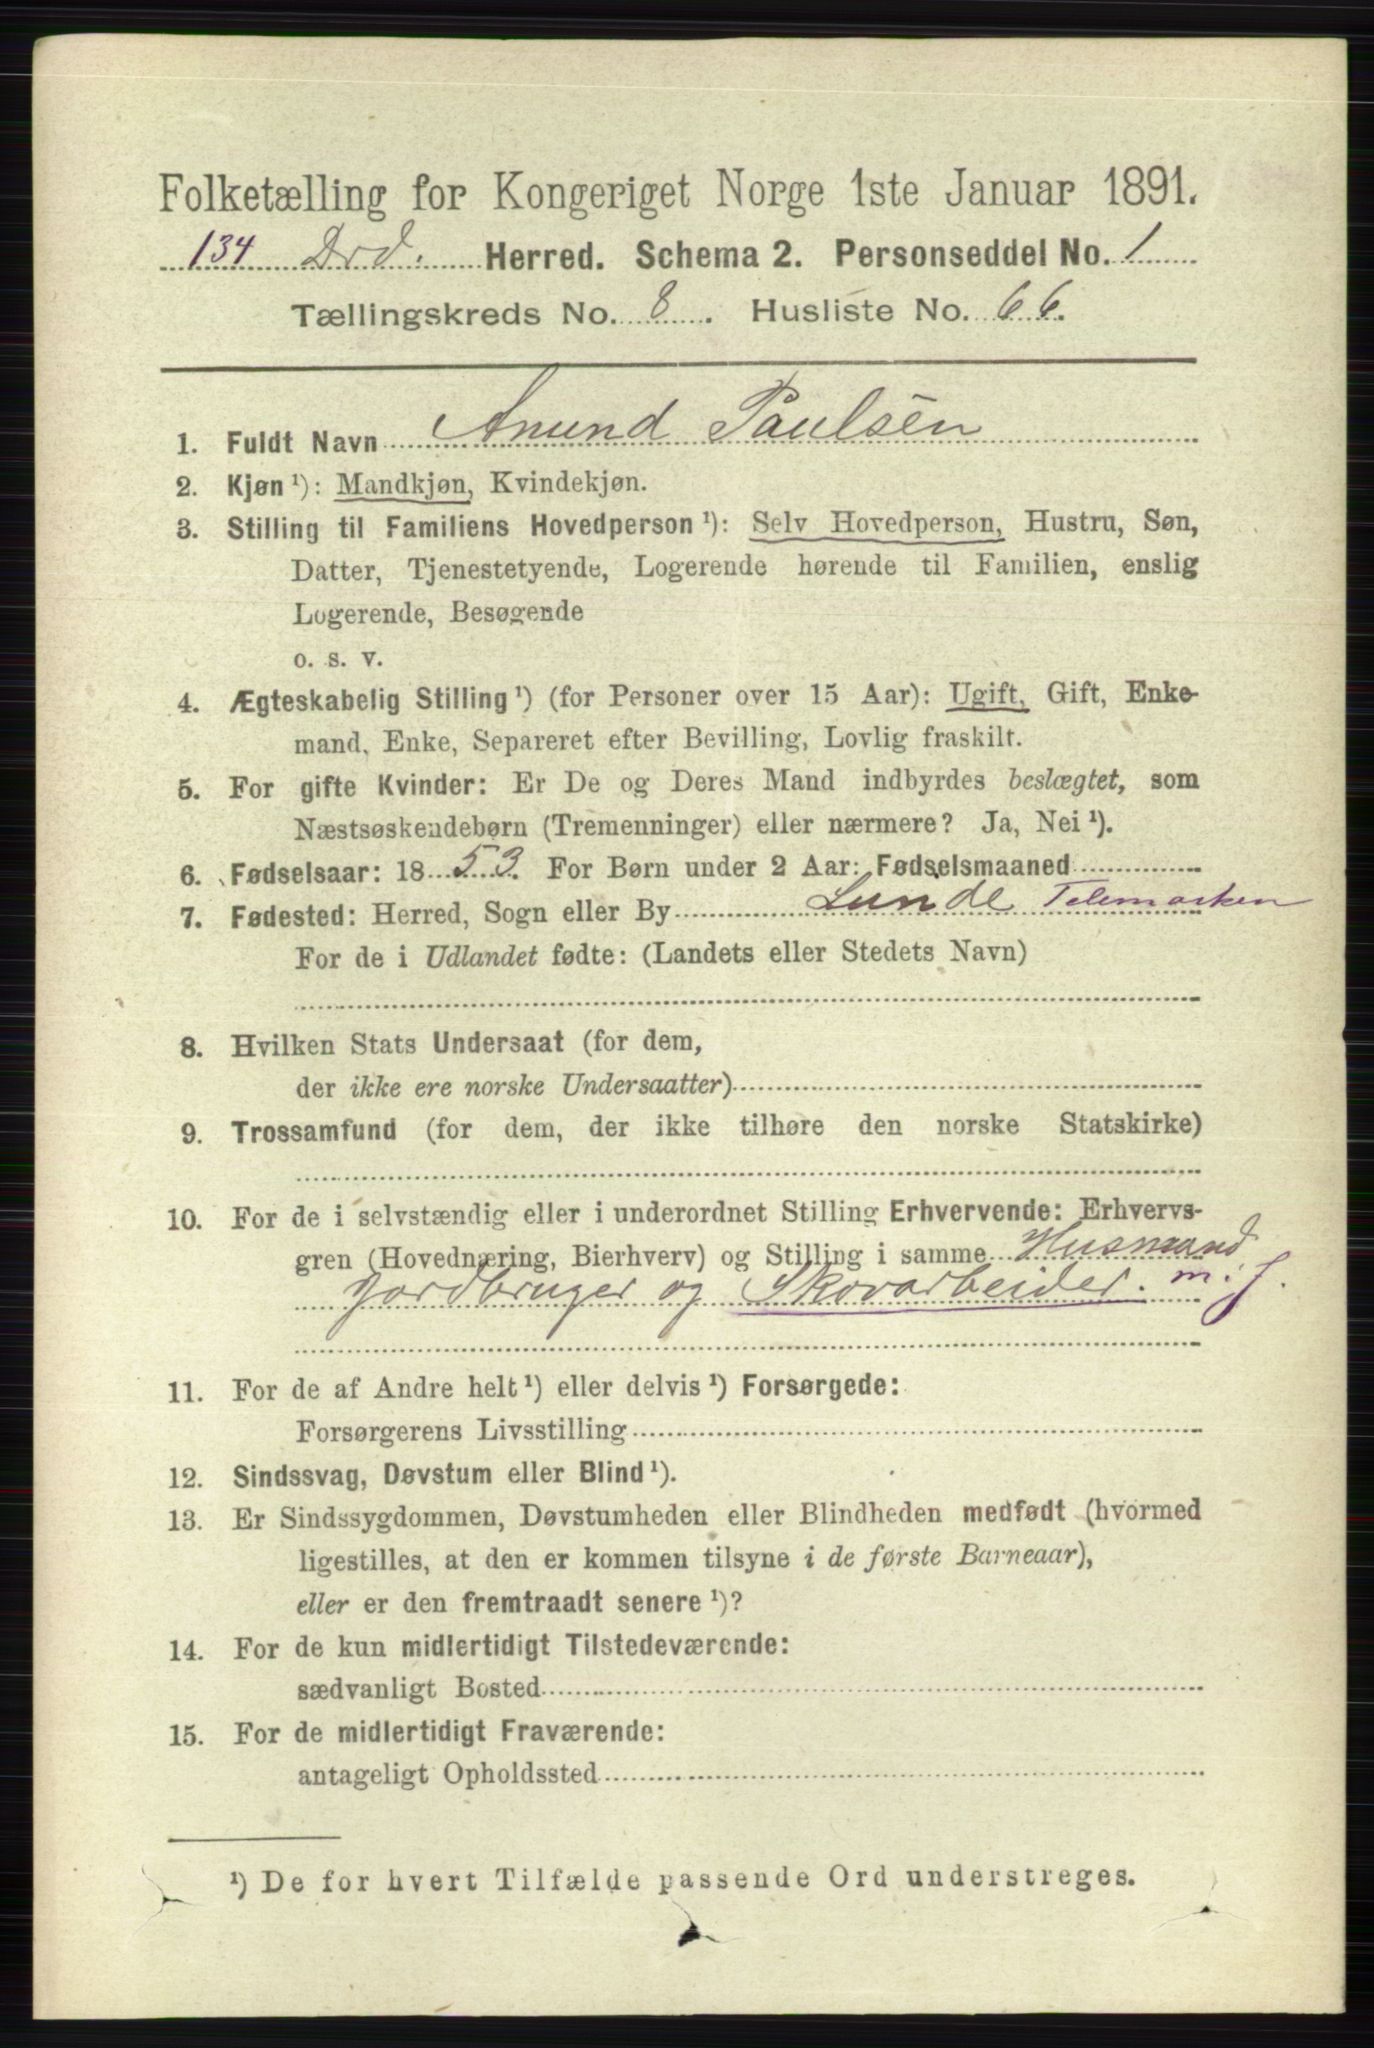 Folketælling for Kongeriget Norge 1ste Januar 1891.
134 Herred. Schema 2. Personseddel No. 1
Tællingskreds No. 8. Husliste No. 66.
1. Fuldt Navn Anund Paulsen
2. Kjøn ¹): Mandkjøn, Kvindekjøn.
3. Stilling til Familiens Hovedperson ¹): Selv Hovedperson, Hustru, Søn,
Datter, Tjenestetyende, Logerende hørende til Familien, enslig
Logerende, Besøgende
o. s. v.
4. Ægteskabelig Stilling ¹) (for Personer over 15 Aar): Ugift, Gift, Enke-
mand, Enke, Separeret efter Bevilling, Lovlig fraskilt.
5. For gifte Kvinder: Er De og Deres Mand indbyrdes beslægtet, som
Næstsøskendebørn (Tremenninger) eller nærmere? Ja, Nei ¹).
6. Fødselsaar: 1853. For Børn under 2 Aar: Fødselsmaaned
7. Fødested: Herred, Sogn eller By Lunde Telemarken
For de i Udlandet fødte: (Landets eller Stedets Navn)
8. Hvilken Stats Undersaat (for dem,
der ikke ere norske Undersaatter)
9. Trossamfund (for dem, der ikke tilhøre den norske Statskirke)
10. For de i selvstændig eller i underordnet Stilling Erhvervende: Erhvervs-
gren (Hovednæring, Bierhverv) og Stilling i samme Husmand
jordbruger og Skovarbeider. m. j.
11. For de af Andre helt ¹) eller delvis ¹) Forsørgede:
Forsørgerens Livsstilling
12. Sindssvag, Døvstum eller Blind ¹).
13. Er Sindssygdommen, Døvstumheden eller Blindheden medfødt (hvormed
ligestilles, at den er kommen tilsyne i de første Barneaar),
eller er den fremtraadt senere ¹)?
14. For de kun midlertidigt Tilstedeværende:
sædvanligt Bosted
15. For de midlertidigt Fraværende:
antageligt Opholdssted
¹) De for hvert Tilfælde passende Ord understreges.